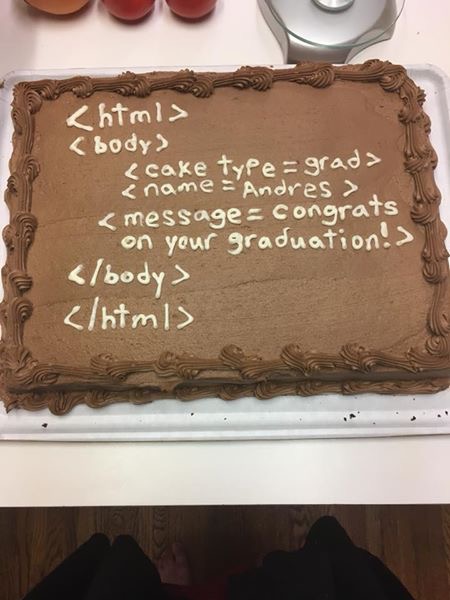 <html>
<body>
<cake type=grad>
<name=Andres >
<message= congrats
on your graduation!>
</body>
</html>